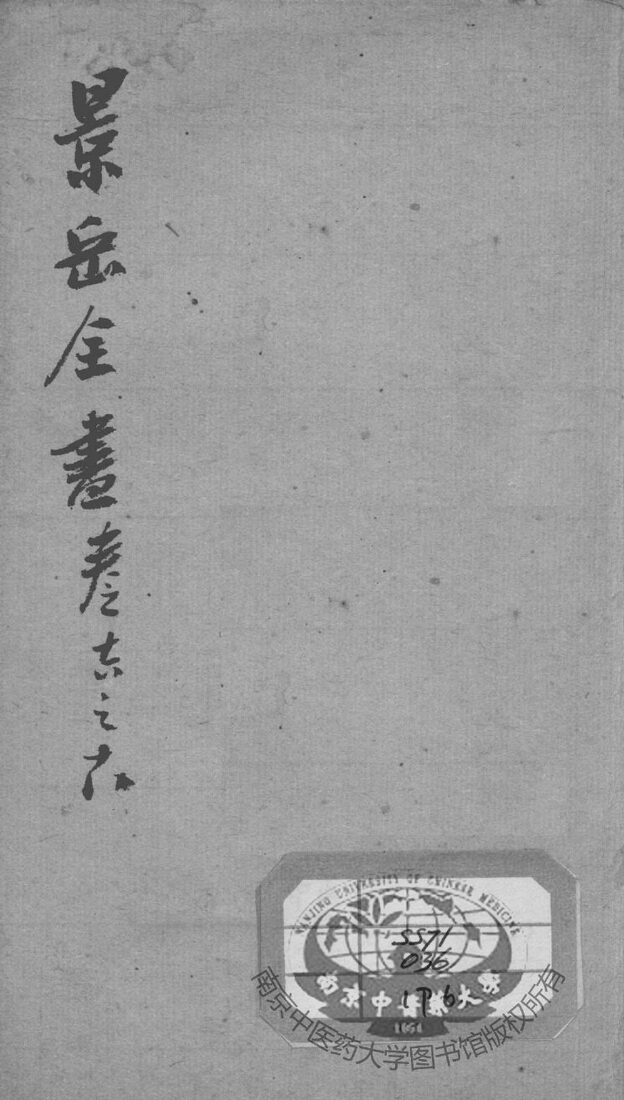 景岳全書
NANJING UNIVERSITY OF CHINESE MEDICINE
SS71
036
南京中醫藥大學
1954
南京中医药大学图书馆版权所有